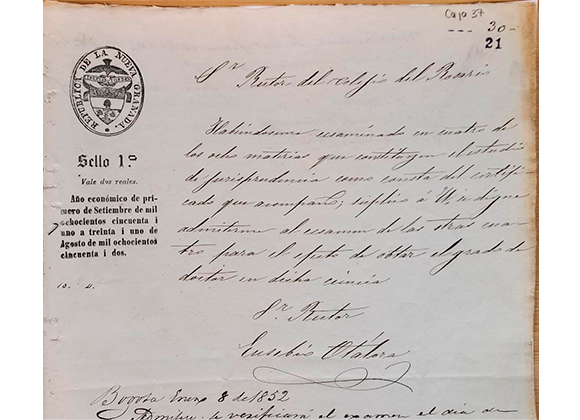 Caja 37
30-
21
REPUBLICA DE LA NUEVA GRANADA.
Sello 1.º
Vale dos reales.
Año económico de pri-
mero de Setiembre de mil
ochocientos cincuenta i
uno a treinta i uno de
Agosto de mil ochocientos
cincuenta i dos.
Sr. Rector del colegio del Rosario
Habiéndoseme ecsaminado en cuatro de
las ocho materias que constituyen el estudio
de jurisprudencia como consta del certifi-
cado que acompaño; suplico á U. se digne
admitirme al ecsamen de las otras cua-
tro para el efecto de obtar el grado de
doctor en dicha ciencia
Sr. Rector
Eusebio Otálora
Bogotá Enero 8 de 1852
se verificará el examen el dia de